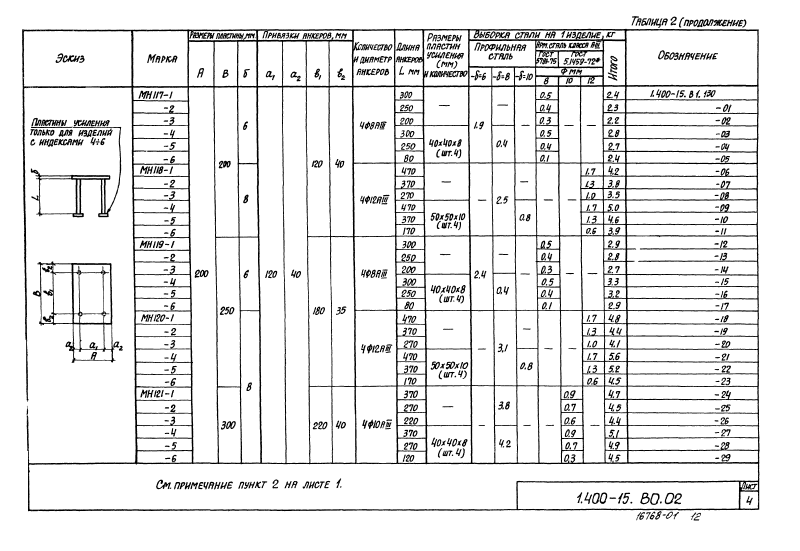 Таблица 2 (продолжение)
Эскиз Марка Размеры пластины, мм Привязки анкеров, мм Количество и диаметр анкеров Длина анкеров L мм Размеры пластин усиления (мм) и количество Выборка стали на 1 изделие, кг Обозначение
Профильная сталь Арм. сталь класса АIII Итого
ГОСТ 5781-75 ГОСТ 5.1459-72*
А В б а₁ а₂ в₁ в₂ -δ=6 -δ=8 -δ=10 Ф мм
8 10 12
Пластины усиления только для изделий с индексами 4÷6
б
L
в₂
в₁
В
а₂ а₁ а₂
А
200 120 40
МН117-1 200 6 120 40 4Ф8АIII 300 — 1.9 — — 0.5 — — 2.4 1.400-15. В1.130
-2 250 0.4 2.3 -01
-3 200 0.3 2.2 -02
-4 300 40х40х8 (шт.4) 0.4 0.5 2.8 -03
-5 250 0.4 2.7 -04
-6 80 0.1 2.4 -05
МН118-1 8 4Ф12АIII 470 — — 2.5 — — — 1.7 4.2 -06
-2 370 1.3 3.8 -07
-3 270 1.0 3.5 -08
-4 470 50х50х10 (шт.4) 0.8 1.7 5.0 -09
-5 370 1.3 4.6 -10
-6 170 0.6 3.9 -11
МН119-1 250 6 180 35 4Ф8АIII 300 — 2.4 — — 0.5 — — 2.9 -12
-2 250 0.4 2.8 -13
-3 200 0.3 2.7 -14
-4 300 40х40х8 (шт.4) 0.4 0.5 3.3 -15
-5 250 0.4 3.2 -16
-6 80 0.1 2.9 -17
МН120-1 8 4Ф12АIII 470 — — 3.1 — — — 1.7 4.8 -18
-2 370 1.3 4.4 -19
-3 270 1.0 4.1 -20
-4 470 50х50х10 (шт.4) 0.8 1.7 5.6 -21
-5 370 1.3 5.2 -22
-6 170 0.6 4.5 -23
МН121-1 300 220 40 4Ф10АIII 370 — — 3.8 — — 0.9 — 4.7 -24
-2 270 0.7 4.5 -25
-3 220 0.6 4.4 -26
-4 370 40х40х8 (шт.4) 4.2 0.9 5.1 -27
-5 270 0.7 4.9 -28
-6 120 0.3 4.5 -29
См. примечание пункт 2 на листе 1.
1.400-15. ВО.02 Лист 4
16768-01 12